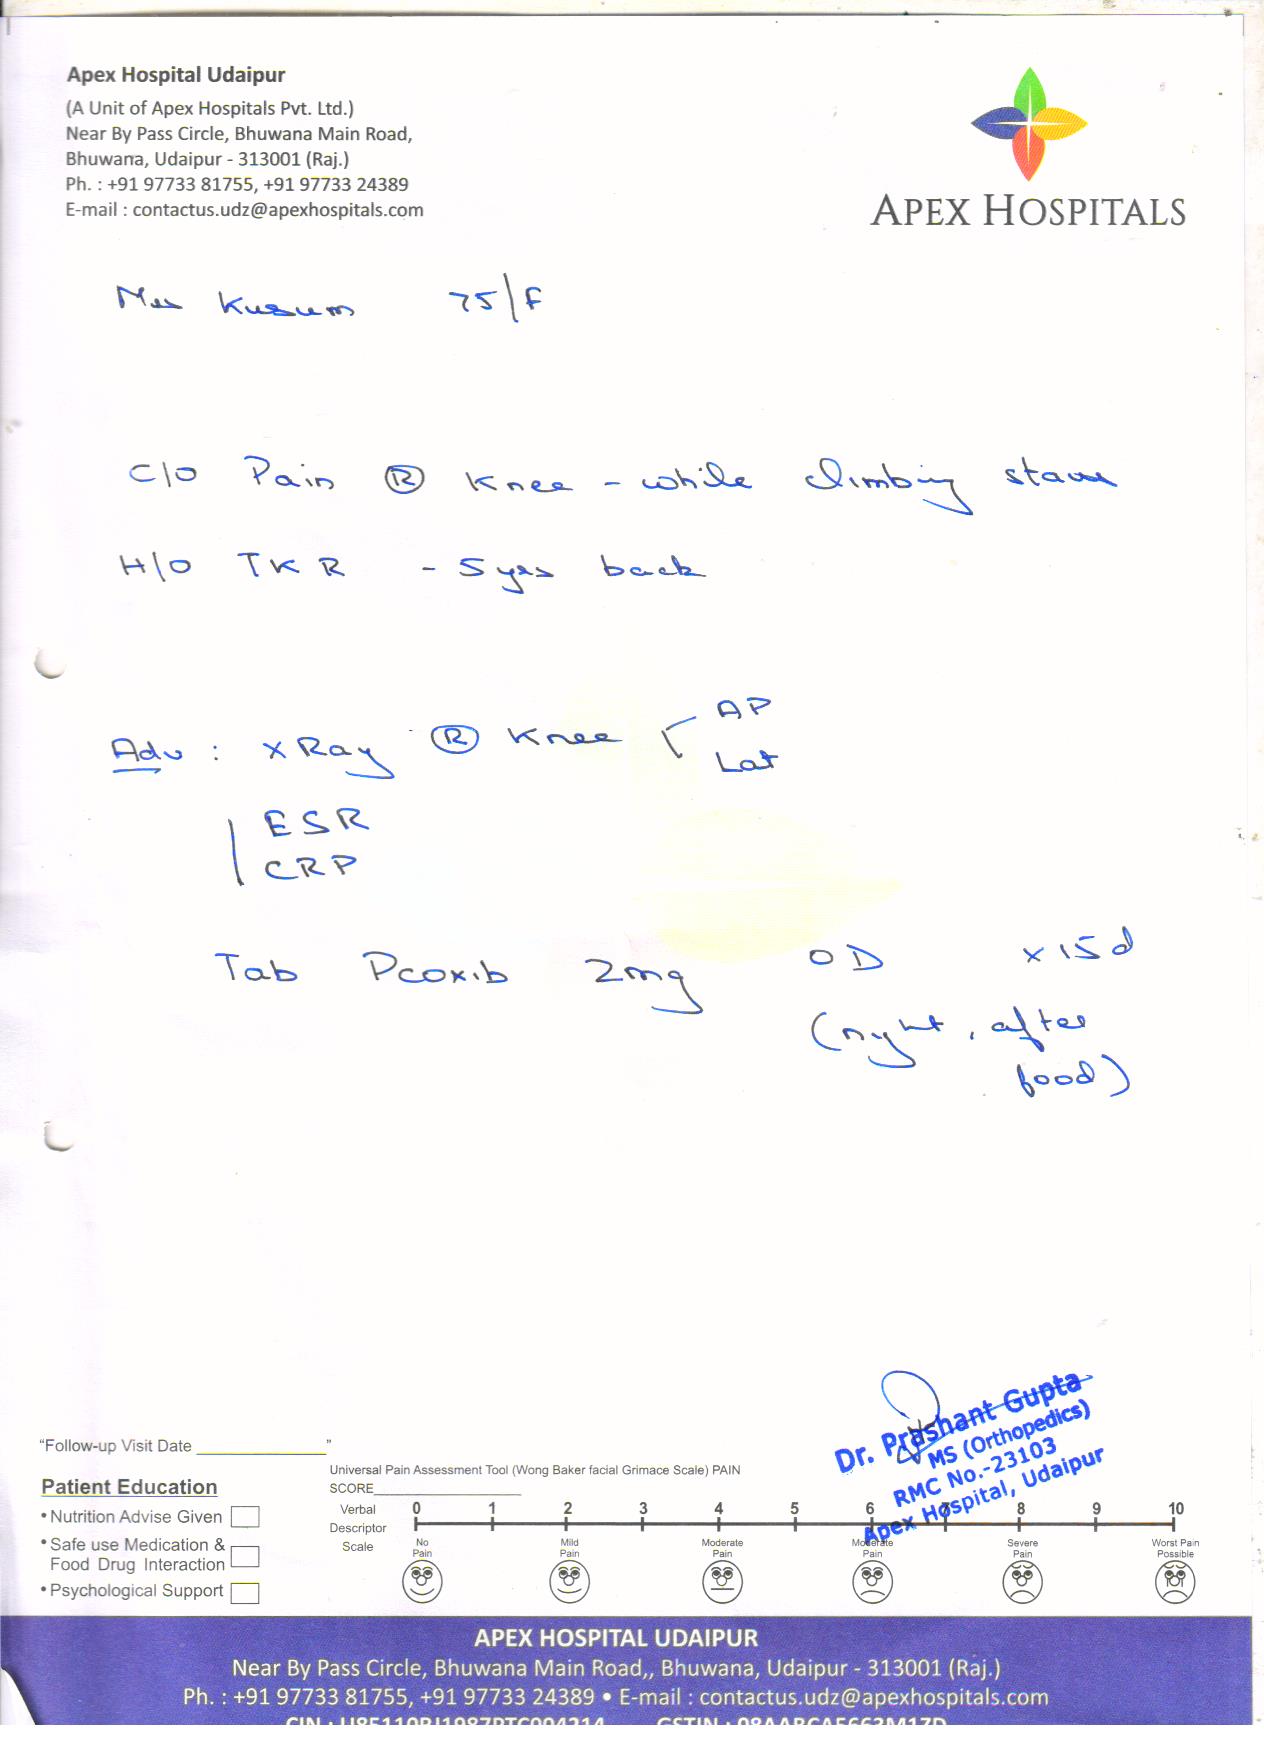 Apex Hospital Udaipur
(A Unit of Apex Hospitals Pvt. Ltd.)
Near By Pass Circle, Bhuwana Main Road,
Bhuwana, Udaipur - 313001 (Raj.)
Ph. : +91 97733 81755, +91 97733 24389
E-mail : contactus.udz@apexhospitals.com
APEX HOSPITALS
Mrs Kusum 75/F
C/O Pain Ⓡ Knee - while climbing stairs
H/O TKR - 5 yrs back
Adv : X Ray Ⓡ Knee AP
Lat
ESR
CRP
Tab Pcoxib 2mg OD x 15 d
(night, after
food)
Dr. Prashant Gupta
MS (Orthopedics)
RMC No.-23103
Apex Hospital, Udaipur
"Follow-up Visit Date ______________"
Patient Education
• Nutrition Advise Given
• Safe use Medication &
Food Drug Interaction
• Psychological Support
Universal Pain Assessment Tool (Wong Baker facial Grimace Scale) PAIN
SCORE____________________
Verbal
Descriptor
Scale
0 1 2 3 4 5 6 7 8 9 10
No Pain
Mild Pain
Moderate Pain
Moderate Pain
Severe Pain
Worst Pain Possible
APEX HOSPITAL UDAIPUR
Near By Pass Circle, Bhuwana Main Road,, Bhuwana, Udaipur - 313001 (Raj.)
Ph. : +91 97733 81755, +91 97733 24389 • E-mail : contactus.udz@apexhospitals.com